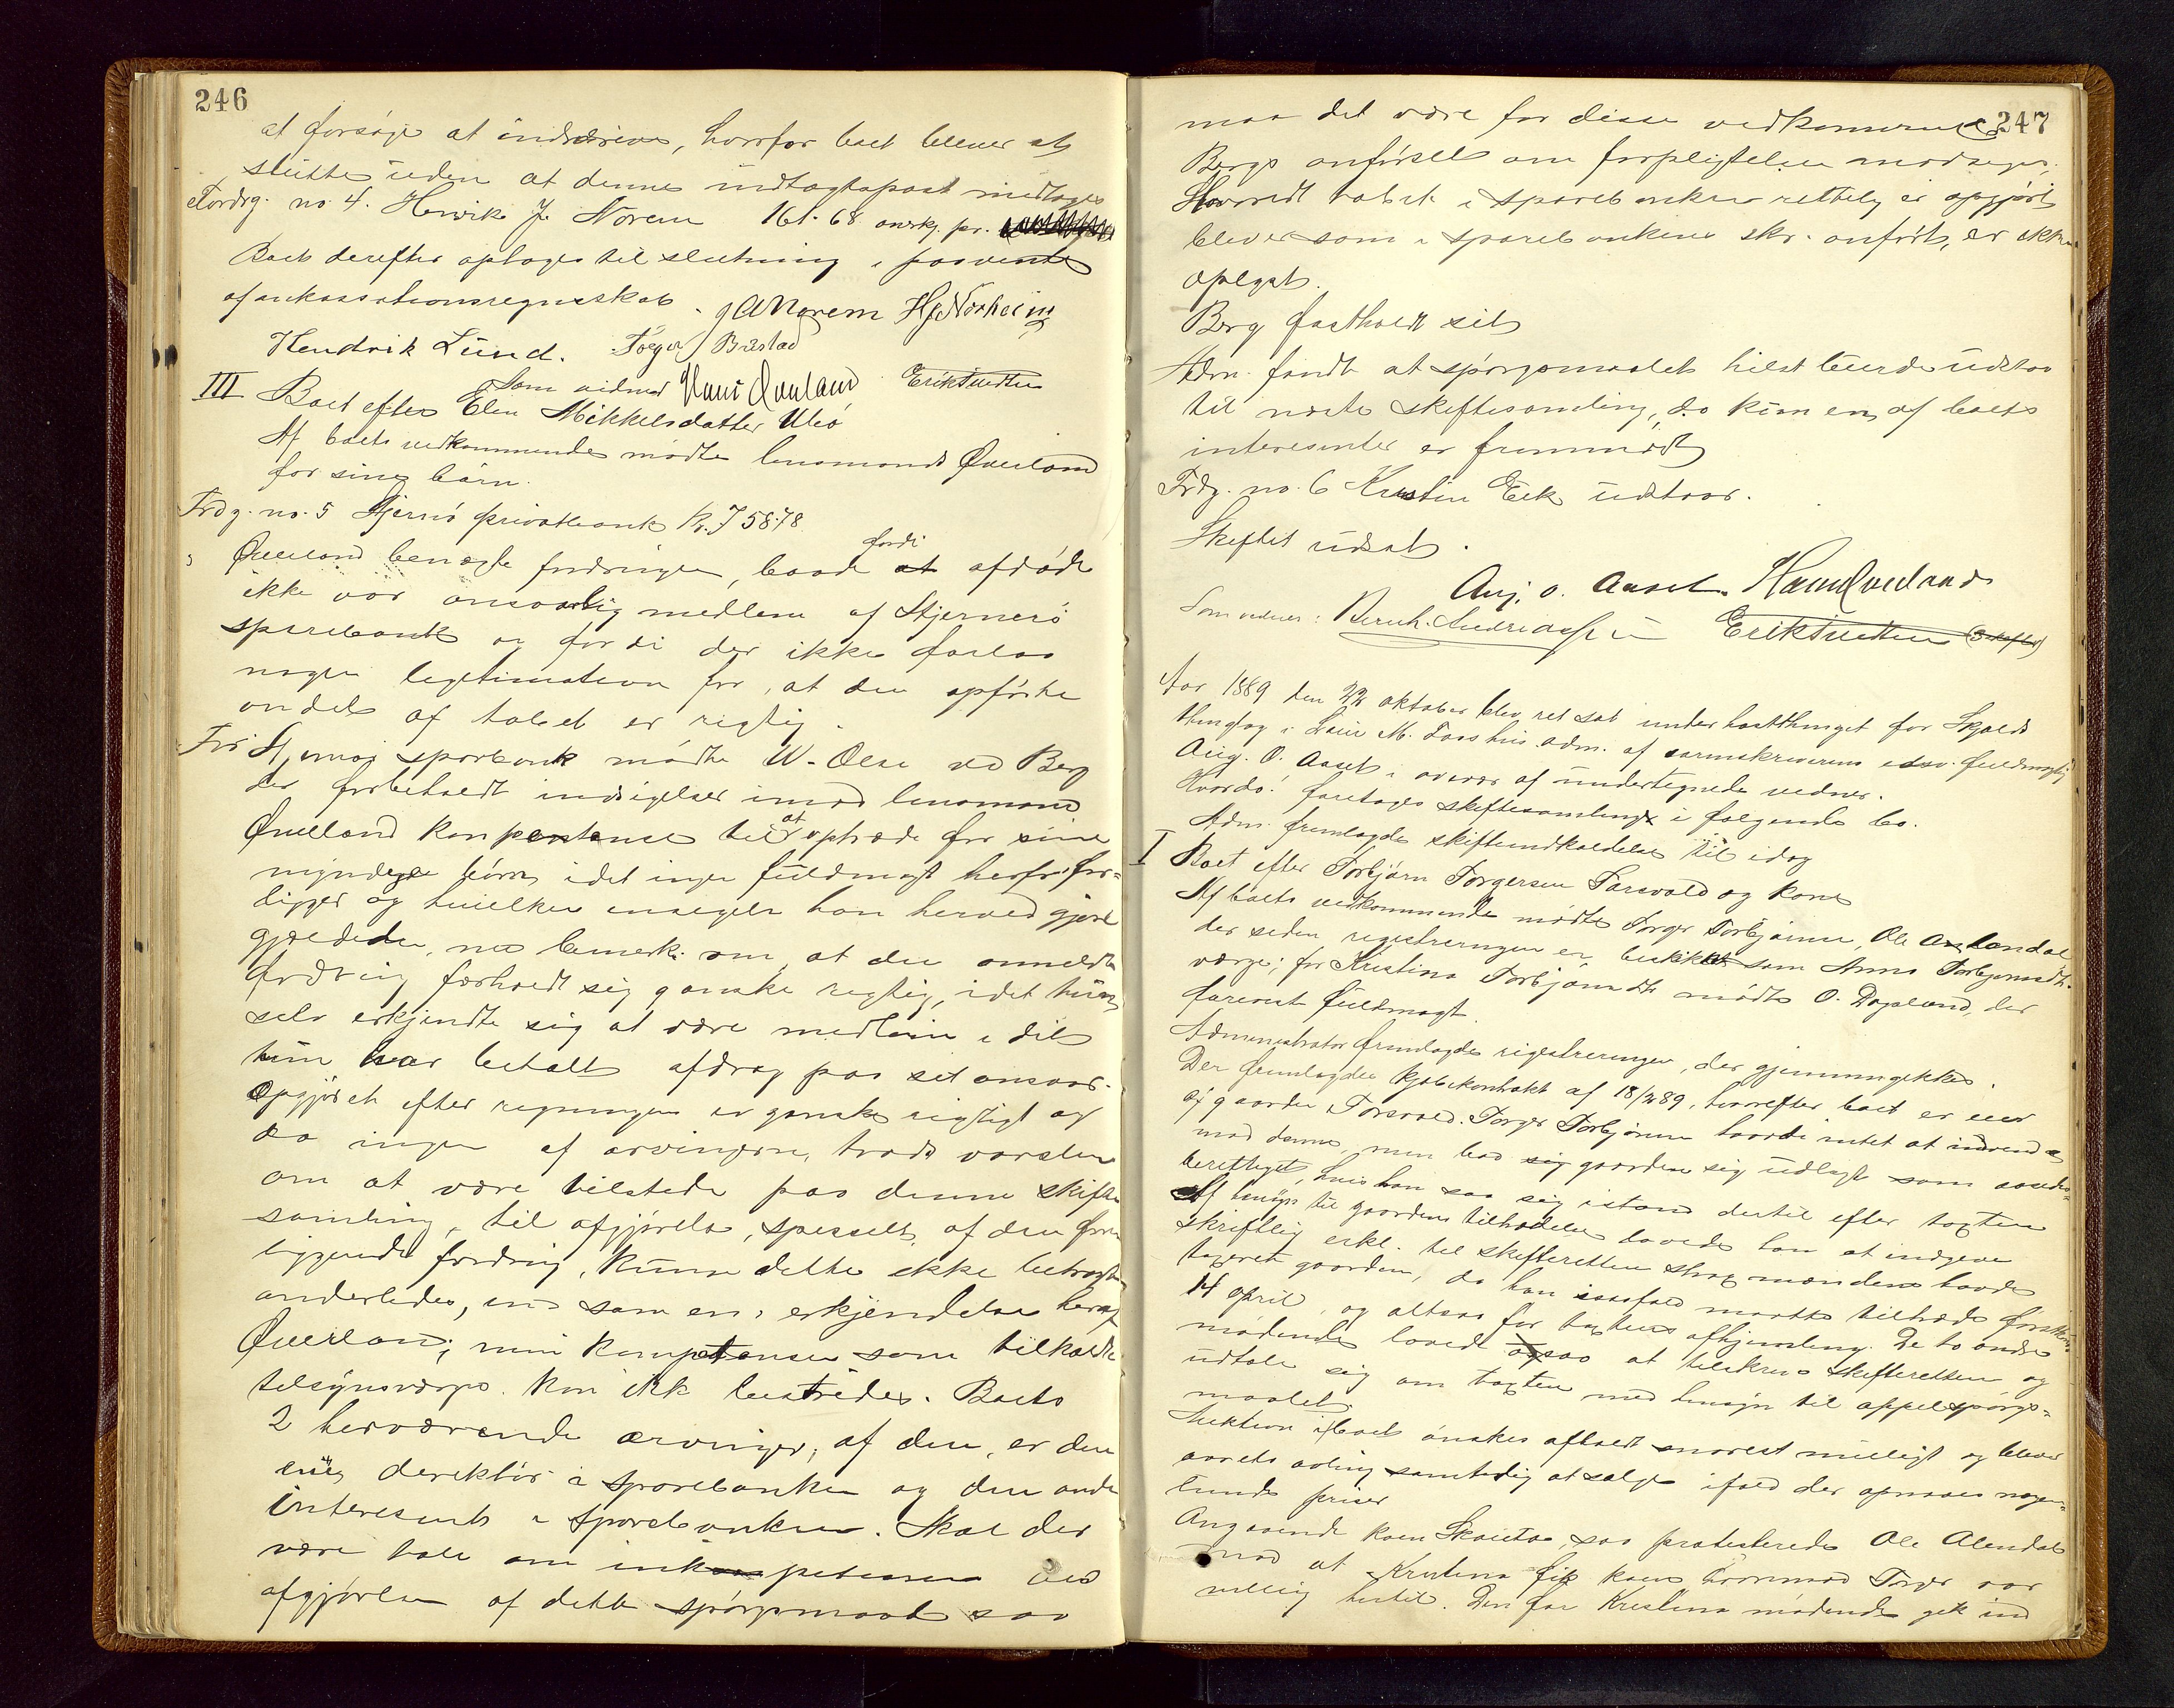 246
at forsøge at inddrives, hvorfor boet blever at
slutte uden at denne indtægtspost medtages
Fordrg. no. 4. Henrik J. Norem 161.68 anerkj. pr.
Boet derefter optoges til slutning i paavente
af inkassationsregnskab. G A Norem HJ Norheim
Hendrik Lund. Torger Birstad
Som vidner Hans Qveland Erik Tvedten
III Boet efter Elen Mikkelsdatter Utsø
Af boets vedkommende mødte lensmand Qveland
for sine børn.
Frdg. no. 5 Stjernø privatbank Kr. 758.78
fordi
Qveland benægte fordringen, baade at afdøde
ikke var ansvarlig medlem af Stjernerø
sparebank og fordi der ikke forlaa
nogen legitimation for, at den opførte
andel af tabet er rigtig.
For Stjernøs sparbank mødte W. Olse ved Berg
der forbeholdt indsigelser imod lensmand
Qveland kompentense til at optræde for sine
myndige børn, idet ingen fuldmagt herfor fore=
ligger og hvilken insigelse han herved gjorde
gjældende, men bemærk. om, at den anmeldte
fordring forholdt sig ganske rigtig, idet hun
selv erkjendte sig at være medlem i det
hun har betalt afdrag paa sit ansvar.
Opgjøret efter regningen er ganske rigtigt og
da ingen af arvingerne, trods varslen
om at være tilstede paa denne skifte
samling, til afgjørelse, spesielt af den fore
liggende fordring, kunne dette ikke betragtes
anderledes, end som en erkjendelse heraf
Qverland; min kompetanse som tilkaldte
tilsynsværge kan ikk bestrides. Boets
2 herværende arvinger, af dem, er den
ene direktør i sparebanken og den anden
interesent i sparebanken. Skal der
være tale om inkompetense ved
afgjørlse af dette spørgsmaal saa
247
maa det være for disse vedkommende
Bergs anførsel om forpligtelsen modsiges,
Hvorvidt tabet i sparebanken rettelig er opgjørt
blever som i sparebankens skr. anført, er ikke
oplyst.
Berg fastholdt sit
Adm. fandt at spørgsmaalet helst burde udstaa
til næste skiftesamling, da kun en af boets
interesenter er fremmødt
Frdg. no. 6 Kristin Eek udstaar.
Skiftet udsat.
Aug. O. Aaset. Hans Qveland
Som vidner: Bernh. Andreassen Erik Tvedten (3 skifter)
Aar 1889 den 22 oktober blev ret sat under høstthinget for Skjolds
thinglag i Lauri M. Foss hus adm. af sorenskriverens edsv. fuldmægtig
Aug. O. Aaset i overvær af undertegnede vidner.
Hvorda: foretages skiftesamling i følgende bo.
Adm. fremlagde skifteindkaldelse til idag
I Boet efter Torbjørn Torgersen Torsvold og kone
Af boets vedkommende mødte Torger Torbjørnsen, Ole Aalendal
der siden registreringen er beskikket som Anna Torbjørnsdt.
værge; for Kristina Torbjørnsdt. mødte O. Dagsland, der
foreviste fuldmagt.
Administrator fremlagde registreringen, der gjennemgikkes.
Der fremlagdes kjøbekontrakt af 18/2 89, hvorefter boet er eier
af gaarden Torsvold. Torger Torbjørnsen havde intet at indvende
mod denne, men bad sig gaarden sig udlagt som aasædes=
berettiget, hvis han saa sig istand dertil efter taxten
Af hensyn til gaardens tilholdelse lovede han at indgive
skriftlig erkl. til skifteretten strax mændene havde
taxeret gaarden, da han isaafald maatte tiltræde førstkom.
14 april, og altsaa før taxtens afhjemling. De to andre
mødende lovede ogsaa at tilskrive skifteretten og
udtale sig om taxten med hensyn til appelspørgs=
maalet.
Auktion i boet ønskes afholdt snarest muligt og blever
aarets avling samtidig at sælge ifald der opnaaes nogen=
lunde priser
Angaaende koen Skauta, saa protesterede Ole Alendal
mod at Kristina fik koen hvormod Torger var
villig hertil. Den for Kristina mødende gik ind